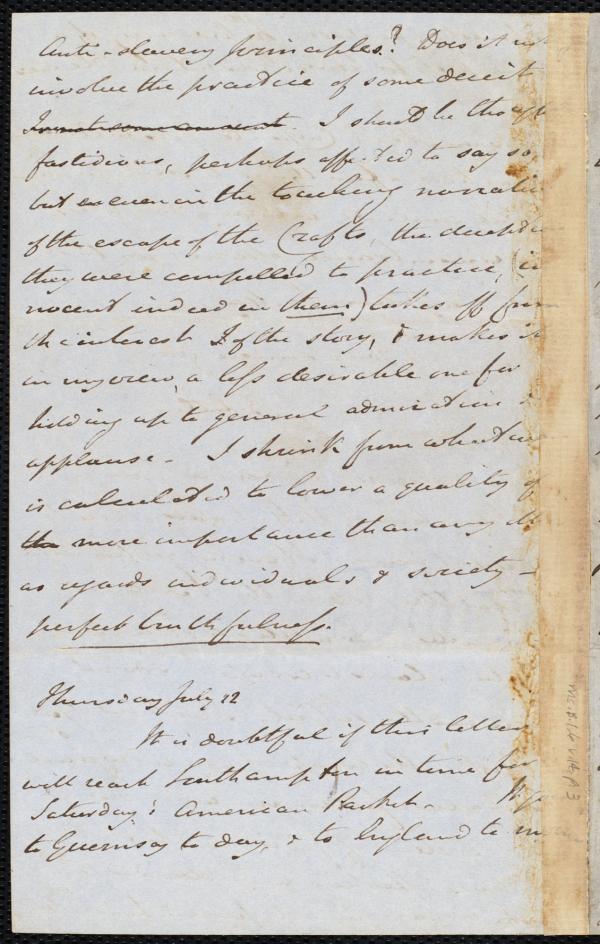 Anti-slavery principles? Does it not
involve the practice of some deceit
I should be thought
fastidious, perhaps affected to say so,
but even in the touching narrative
of the escape of the Crafts, the deception
they were compelled to practice, (in
nocent indeed in them) takes off from
the interest of the story, & makes it
in my view, a less desirable one for
holding up to general admiration &
applause - I shrink from whatever
is calculated to lower a quality of
the more importance than any
as regards individuals & society -
perfect truthfulness.
Thursday July 12
It is doubtful if this letter
will reach Southampton in time for
Saturday's American Packet -
to Guernsey to day, & to England to